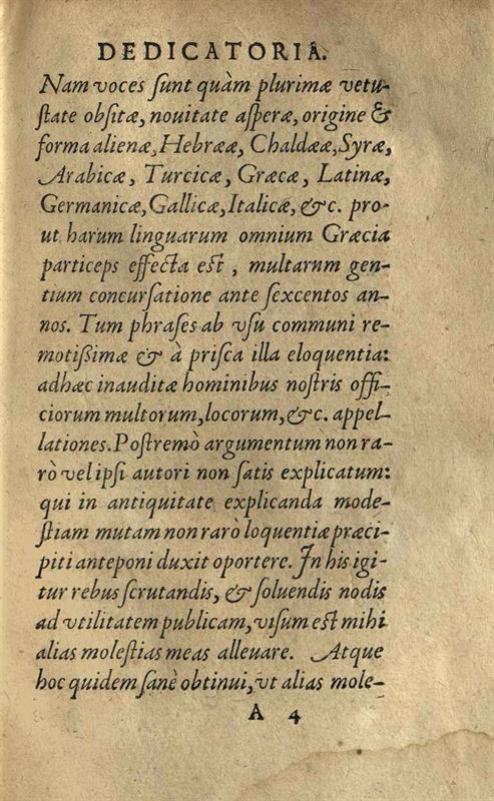 DEDICATORIA.
Nam voces ſunt quàm plurimæ vetu-
ſtate obſitæ, nouitate aſperæ, origine &
forma alienæ, Hebrææ, Chaldææ, Syræ,
Arabicæ, Turcicæ, Græcæ, Latinæ,
Germanicæ, Gallicæ, Italicæ, &c. pro-
ut harum linguarum omnium Græcia
particeps effecta eſt, multarum gen-
tium concurſatione ante ſexcentos an-
nos. Tum phraſes ab vſu communi re-
motißimæ & à priſca illa eloquentia:
adhæc inauditæ hominibus noſtris offi-
ciorum multorum, locorum, &c. appel-
lationes. Poſtremò argumentum non ra-
rò vel ipſi autori non ſatis explicatum:
qui in antiquitate explicanda mode-
ſtiam mutam non rarò loquentiæ præci-
piti anteponi duxit oportere. In his igi-
tur rebus ſcrutandis, & ſoluendis nodis
ad vtilitatem publicam, viſum eſt mihi
alias moleſtias meas alleuare. Atque
hoc quidem ſanè obtinui, vt alias mole-
A 4